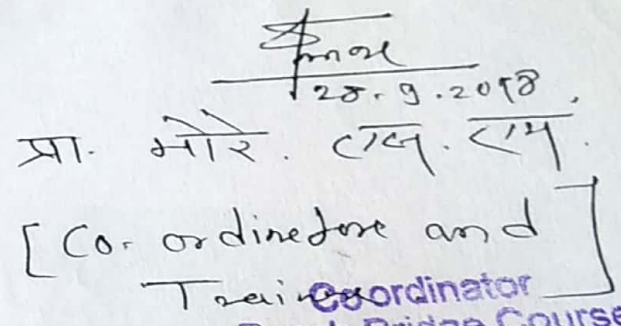 28.9.2018
प्रा. मोरे. एल. एम.
[Co-ordinetore and
Trainer]
Coordinator
Bridge Course